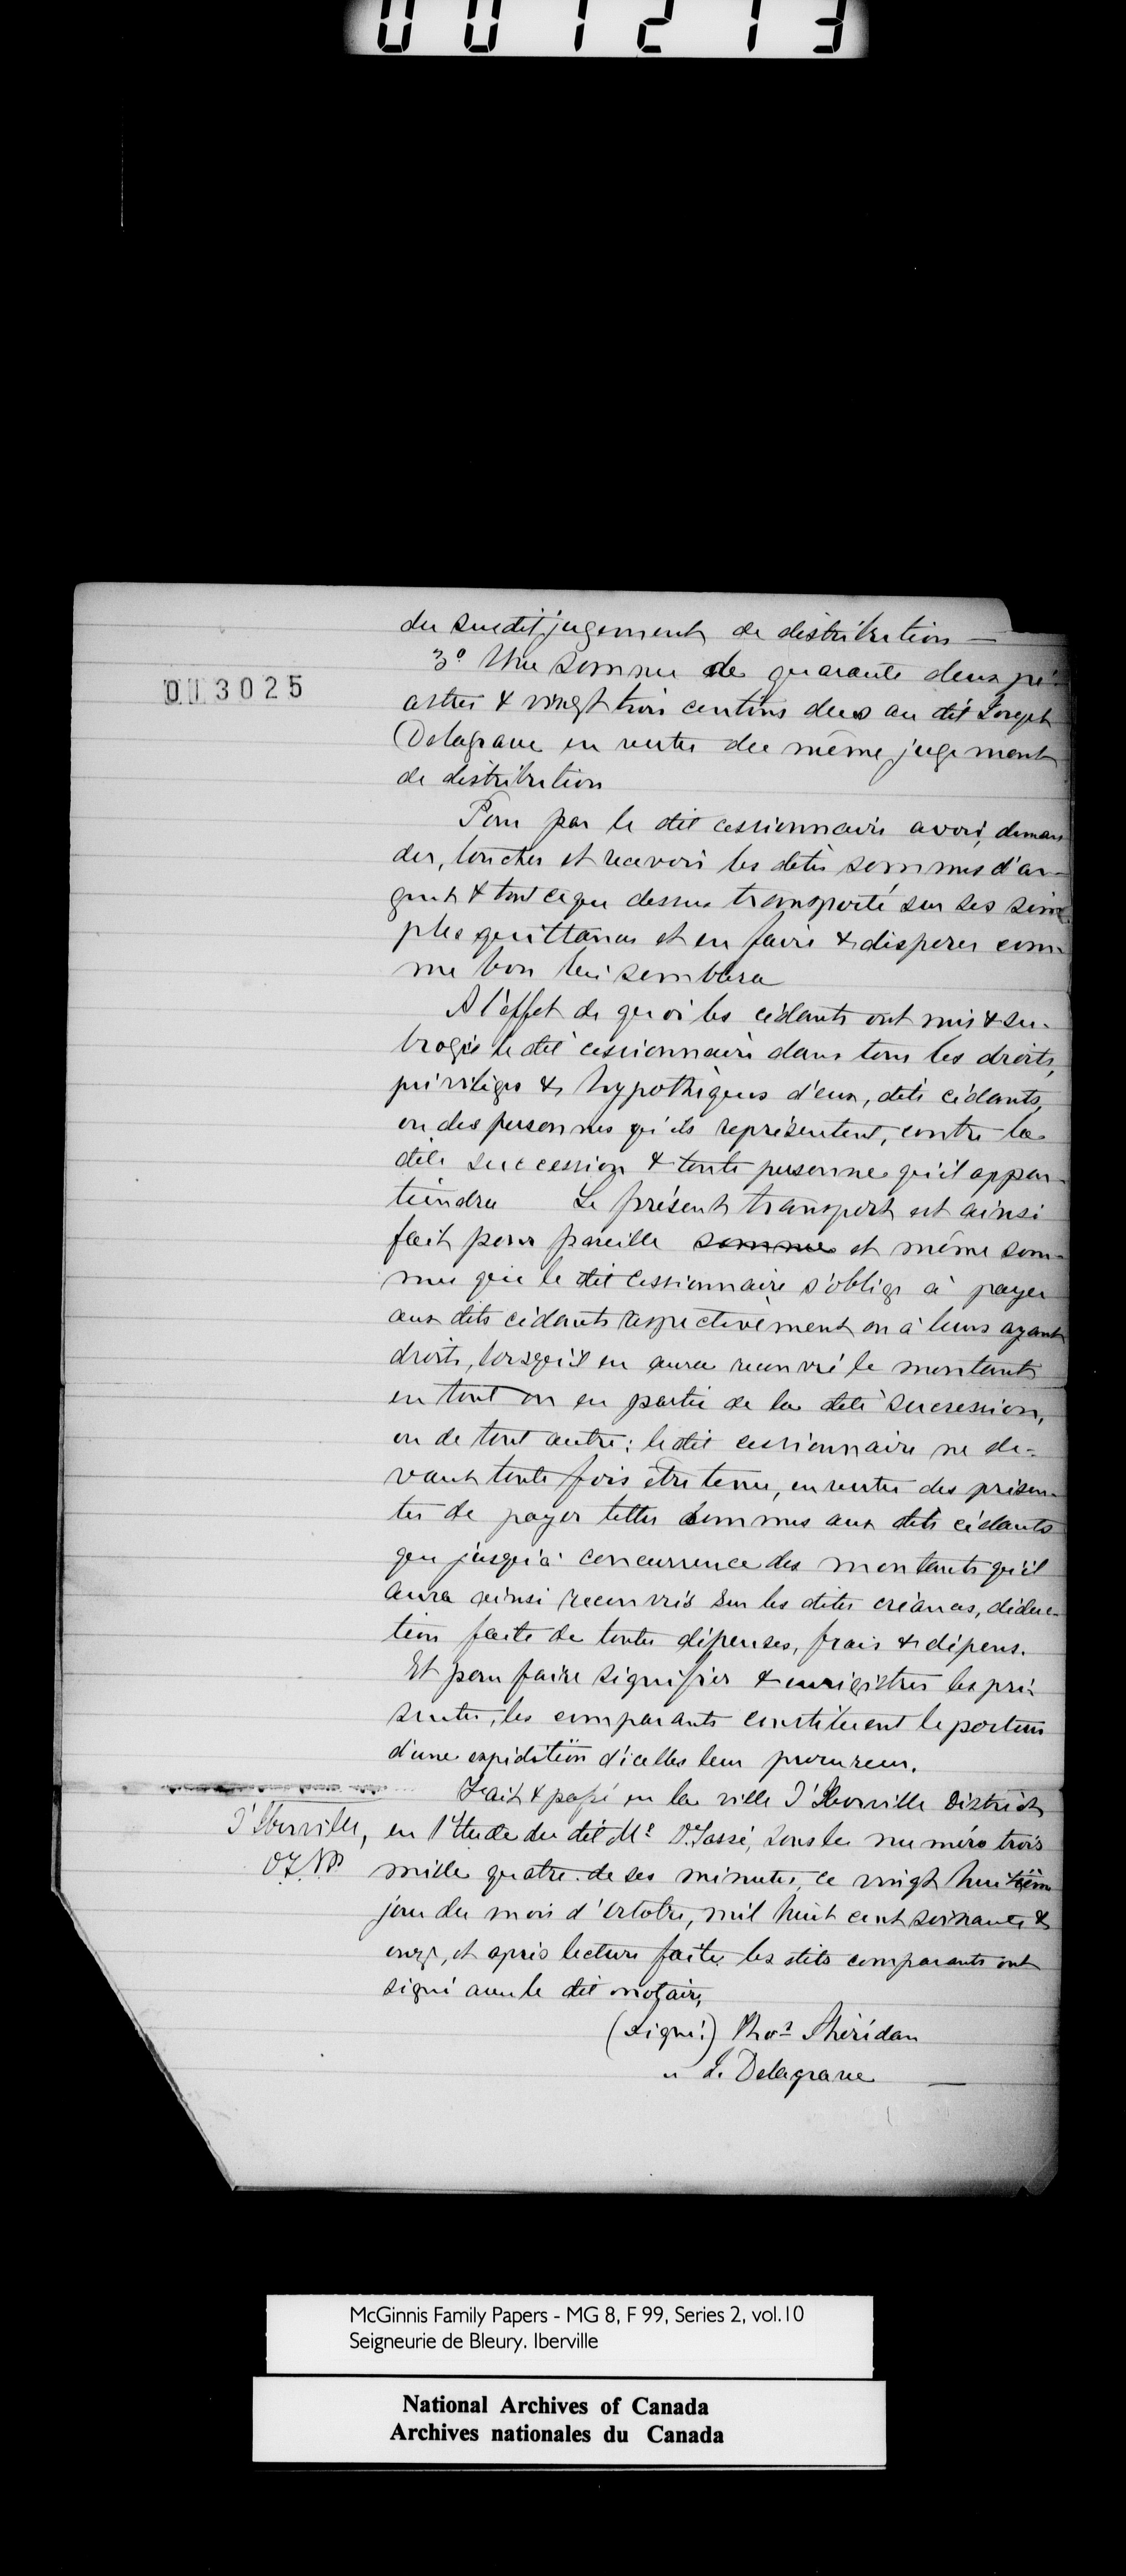 001273
du susdit jugement de distribution —
013025
3º Une somme de quarante deux pi-
astres & vingt trois centins dus au dit Joseph
Delagrave en vertu du même jugement
de distribution
Pour par le dit cessionnaire avoir, deman
der, toucher et recevoir les dites sommes d'ar-
gent & tout ce que dessus transporté sur ses sim-
ples quittances et en faire & disposer com-
me bon lui semblera
A l'effet de quoi les cédants ont mis & su-
brogé le dit cessionnaire dans tous les droits,
privilèges & hypothèques d'eux, dits cédants,
ou des personnes qu'ils représentent, contre la
dite succession & toute personne qu'il appar-
tiendra Le présent transport est ainsi
fait pour pareille somme et même som-
me que le dit cessionnaire s'oblige à payer
aux dits cédants respectivement ou à leurs ayant
droits, lorsqu'il en aura recouvré le montant
en tout ou en partie de la dite succession,
ou de tout autre; le dit cessionnaire ne de-
vant toute fois être tenu, en vertu des présen-
tes de payer telles sommes aux dits cédants
que jusqu'à concurrence des montants qu'il
aura ainsi recouvrés sur les dites créances, déduc-
tion faite de toutes dépenses, frais & dépens.
Et pour faire signifier & enregistrer les pré-
sentes, les comparants constituent le porteur
d'une expédition d'icelles leur procureur.
Fait & passé en la ville d'Iberville District
d'Iberville, en l'Etude du dit Mº D. Tassé, sous le numéro trois
mille quatre de ses minutes, ce vingt huitième
jour du mois d'octobre, mil huit cent soixante &
onze, et après lecture faite les dits comparants ont
signé avec le dit notaire,
(Signé:) Thos Shéridan
" J. Delagrave —
McGinnis Family Papers - MG 8, F 99, Series 2, vol.10
Seigneurie de Bleury. Iberville
National Archives of Canada
Archives nationales du Canada